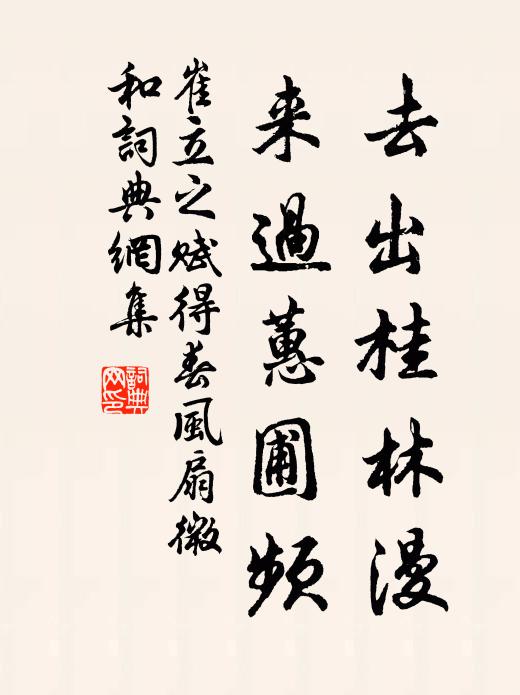 去出桂林漫
来過蕙圃頻
崔立之賦得春風扇微
和詞典網集
詞典
网印